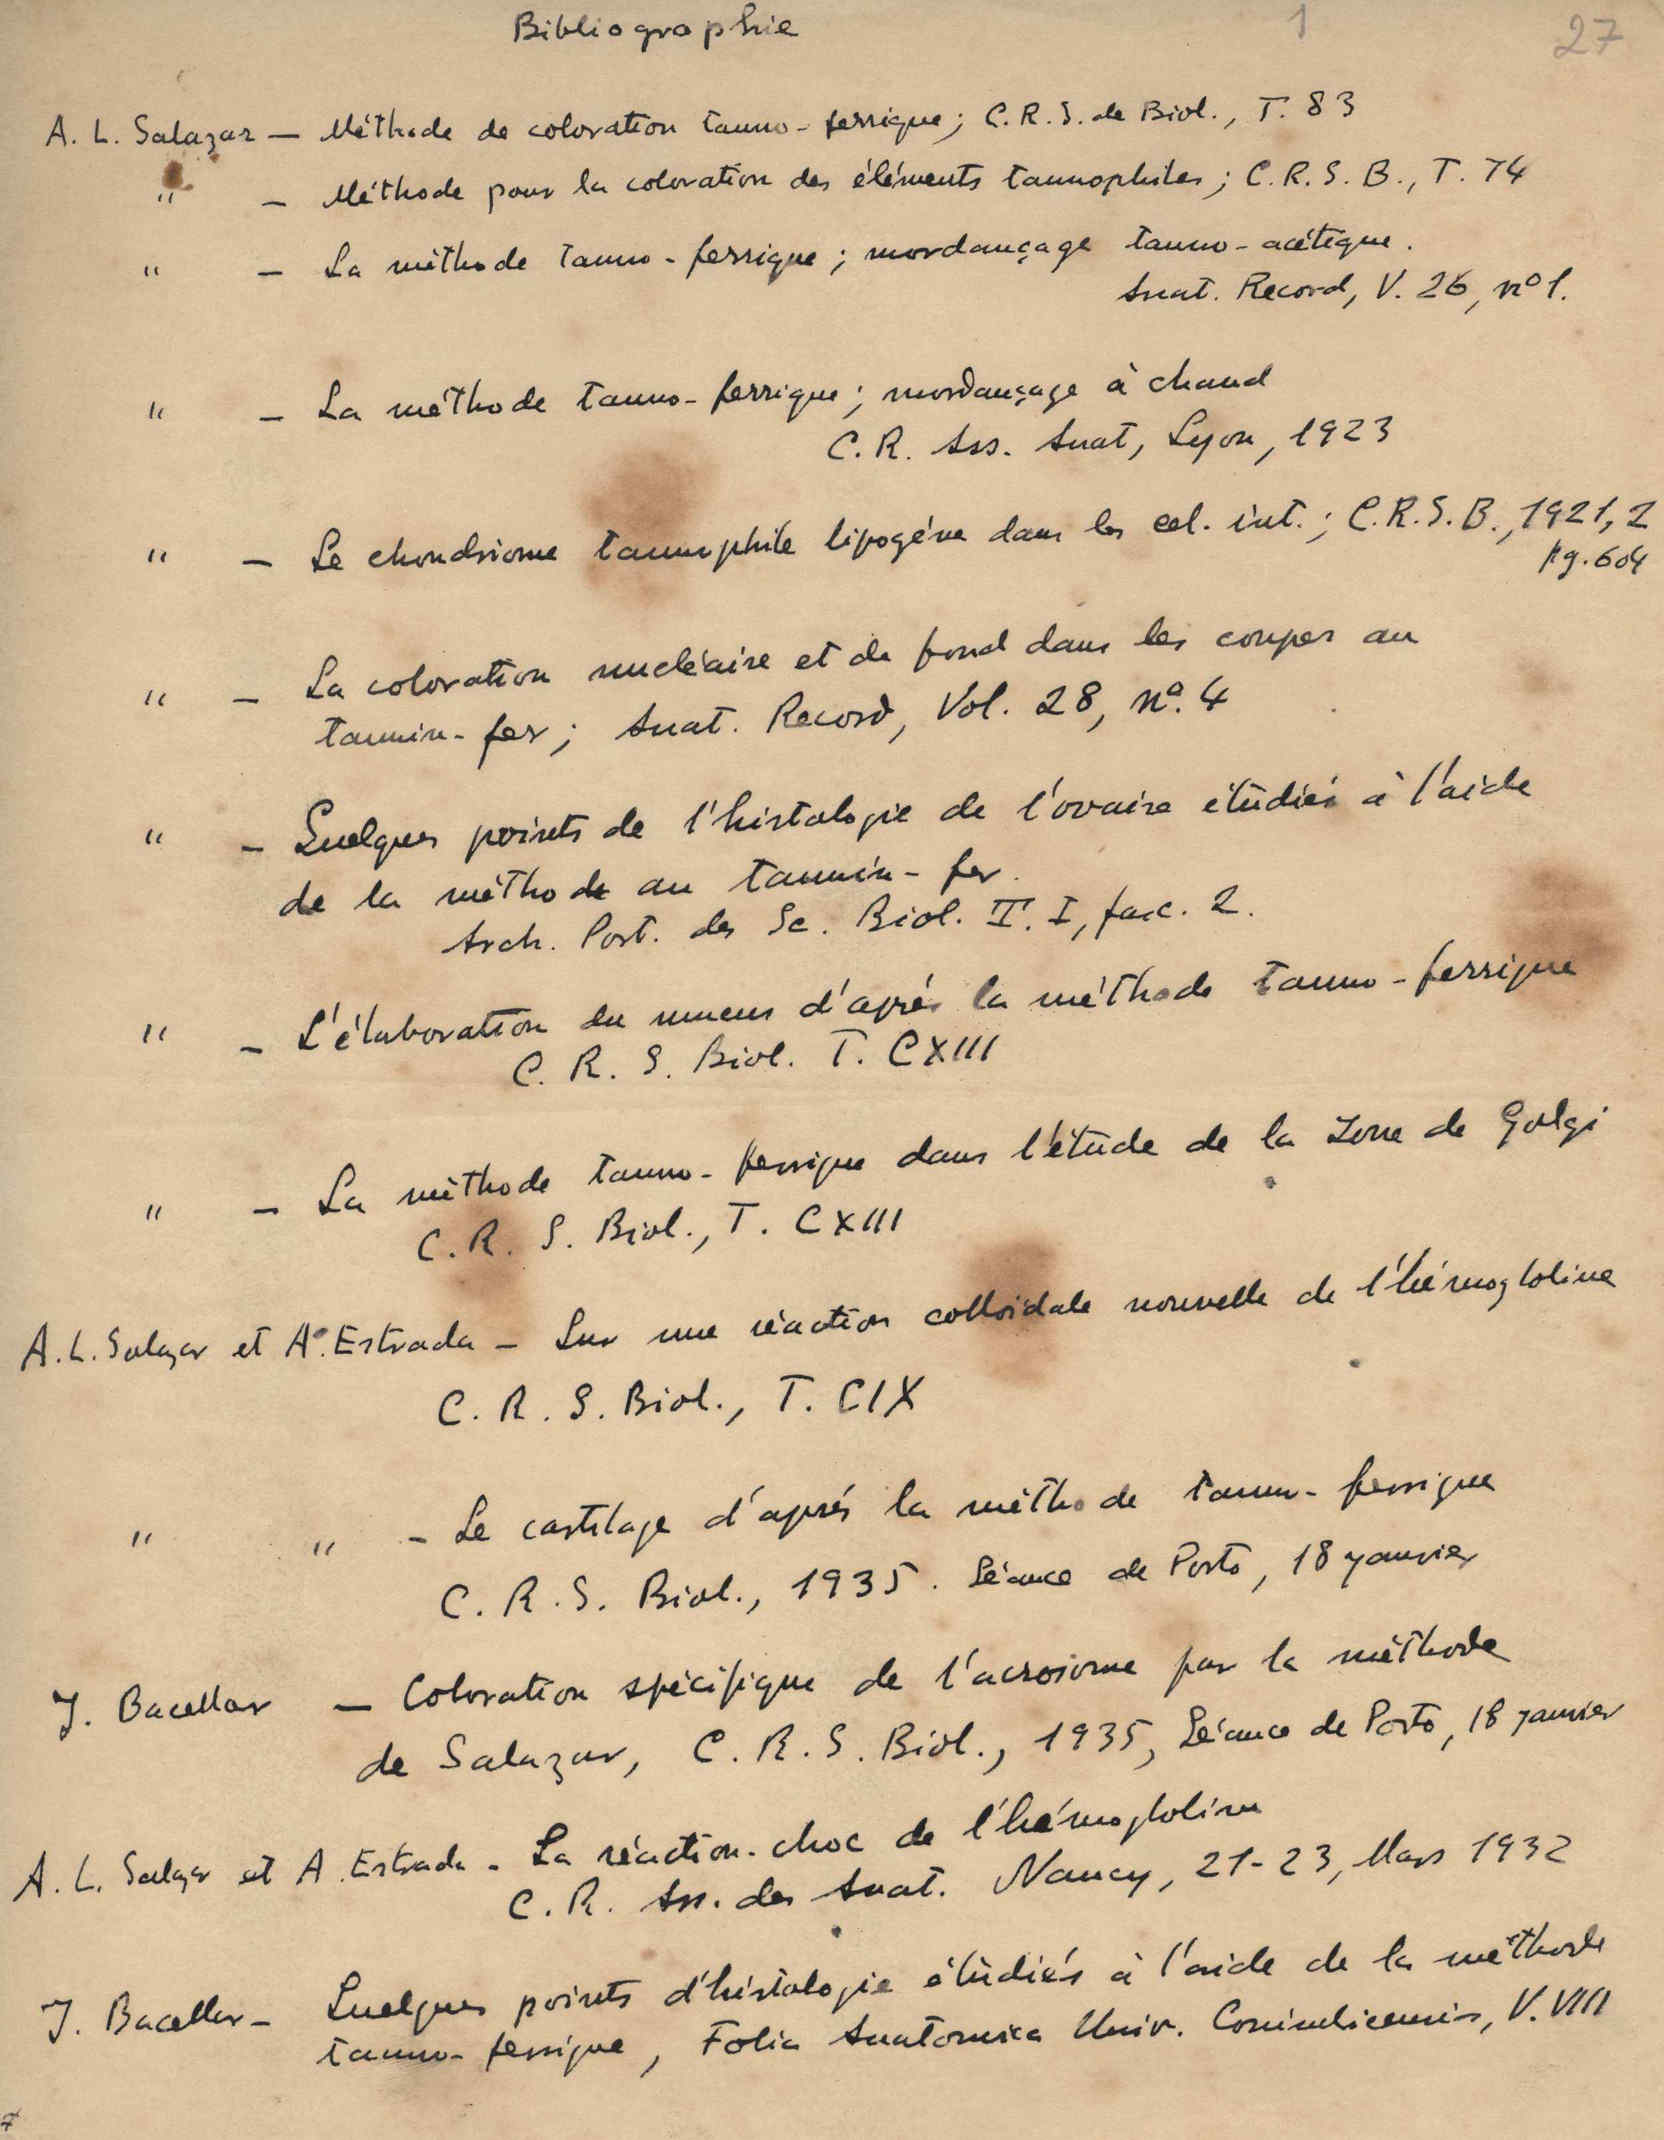 Bibliographie 1 27
A. L. Salazar — Méthode de coloration tanno-ferrique; C.R.S. de Biol., T. 83
" — Méthode pour la coloration des éléments tannophiles; C.R.S.B., T. 74
" — La méthode tanno-ferrique; mordançage tanno-acétique.
Anat. Record, V. 26, nº 1.
" — La méthode tanno-ferrique; mordançage à chaud
C.R. Ass. Anat, Lyon, 1923
" — Le chondriome tannophile lipogéne dans les cel. int.; C.R.S.B., 1921, 2
pg. 604
" — La coloration nucléaire et de fond dans les coupes au
tannin-fer; Anat. Record, Vol. 28, nº. 4
" — Quelques points de l'histologie de l'ovaire étudiés à l'aide
de la méthode au tannin-fer.
Arch. Port. des Sc. Biol. T. I, fasc. 2.
" — L'élaboration du mucus d'aprés la méthode tanno-ferrique
C. R. S. Biol. T. CXIII
" — La méthode tanno-ferrique dans l'étude de la zone de Golgi
C. R. S. Biol., T. CXIII
A. L. Salazar et A. Estrada — Sur une réaction colloïdale nouvelle de l'hémogloline
C. R. S. Biol., T. CIX
" " — Le cartilage d'aprés la méthode tanno-ferrique
C. R. S. Biol., 1935. Séance de Porto, 18 janvier
J. Bacellar — Coloration spécifique de l'acrosome par la méthode
de Salazar, C. R. S. Biol., 1935, Séance de Porto, 18 janvier
A. L. Salazar et A. Estrada - La réaction-choc de l'hémogloline
C. R. Ass. des Anat. Nancy, 21-23, Mars 1932
J. Bacellar — Quelques points d'histologie étudiés à l'aide de la méthode
tanno-ferrique, Folia Anatomica Univ. Conimbricensis, V. VIII